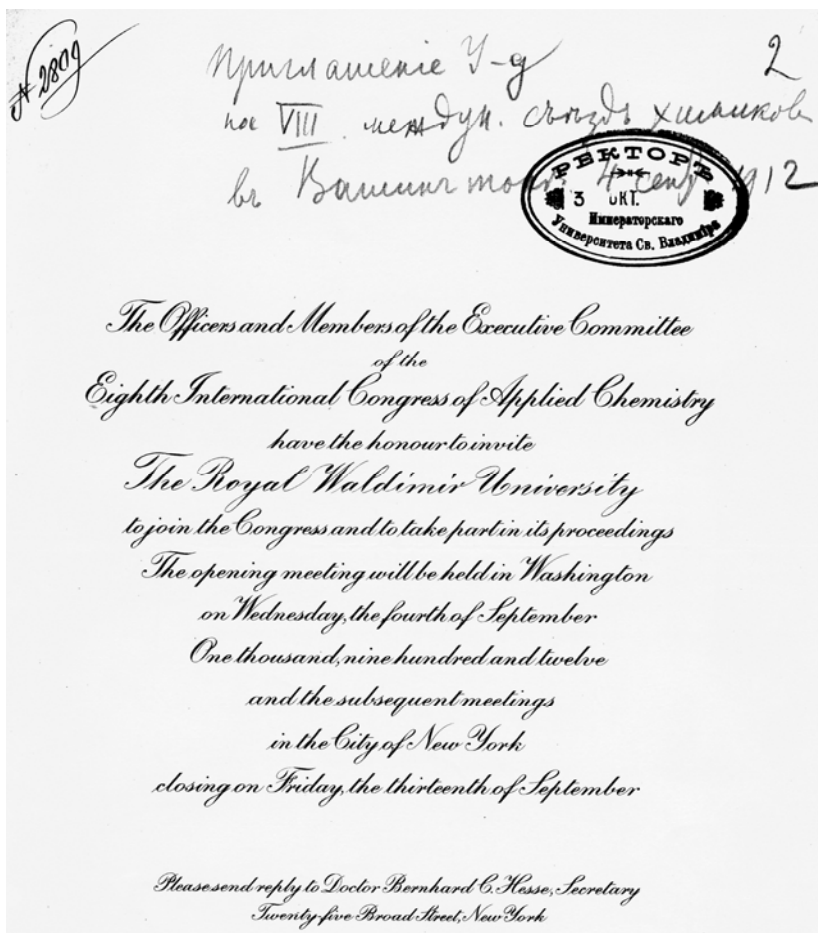 № 2809
Приглашеніе У-ту 2
на VIII междун. съѣздъ химиковъ
въ Вашингтонѣ 4 сент. 1912
РЕКТОРЪ
3 ОКТ.
Императорскаго
Университета Св. Владиміра
The Officers and Members of the Executive Committee
of the
Eighth International Congress of Applied Chemistry
have the honour to invite
The Royal Waldimir University
to join the Congress and to take part in its proceedings
The opening meeting will be held in Washington
on Wednesday, the fourth of September
One thousand, nine hundred and twelve
and the subsequent meetings
in the City of New York
closing on Friday, the thirteenth of September
Please send reply to Doctor Bernhard C. Hesse, Secretary
Twenty-five Broad Street, New York